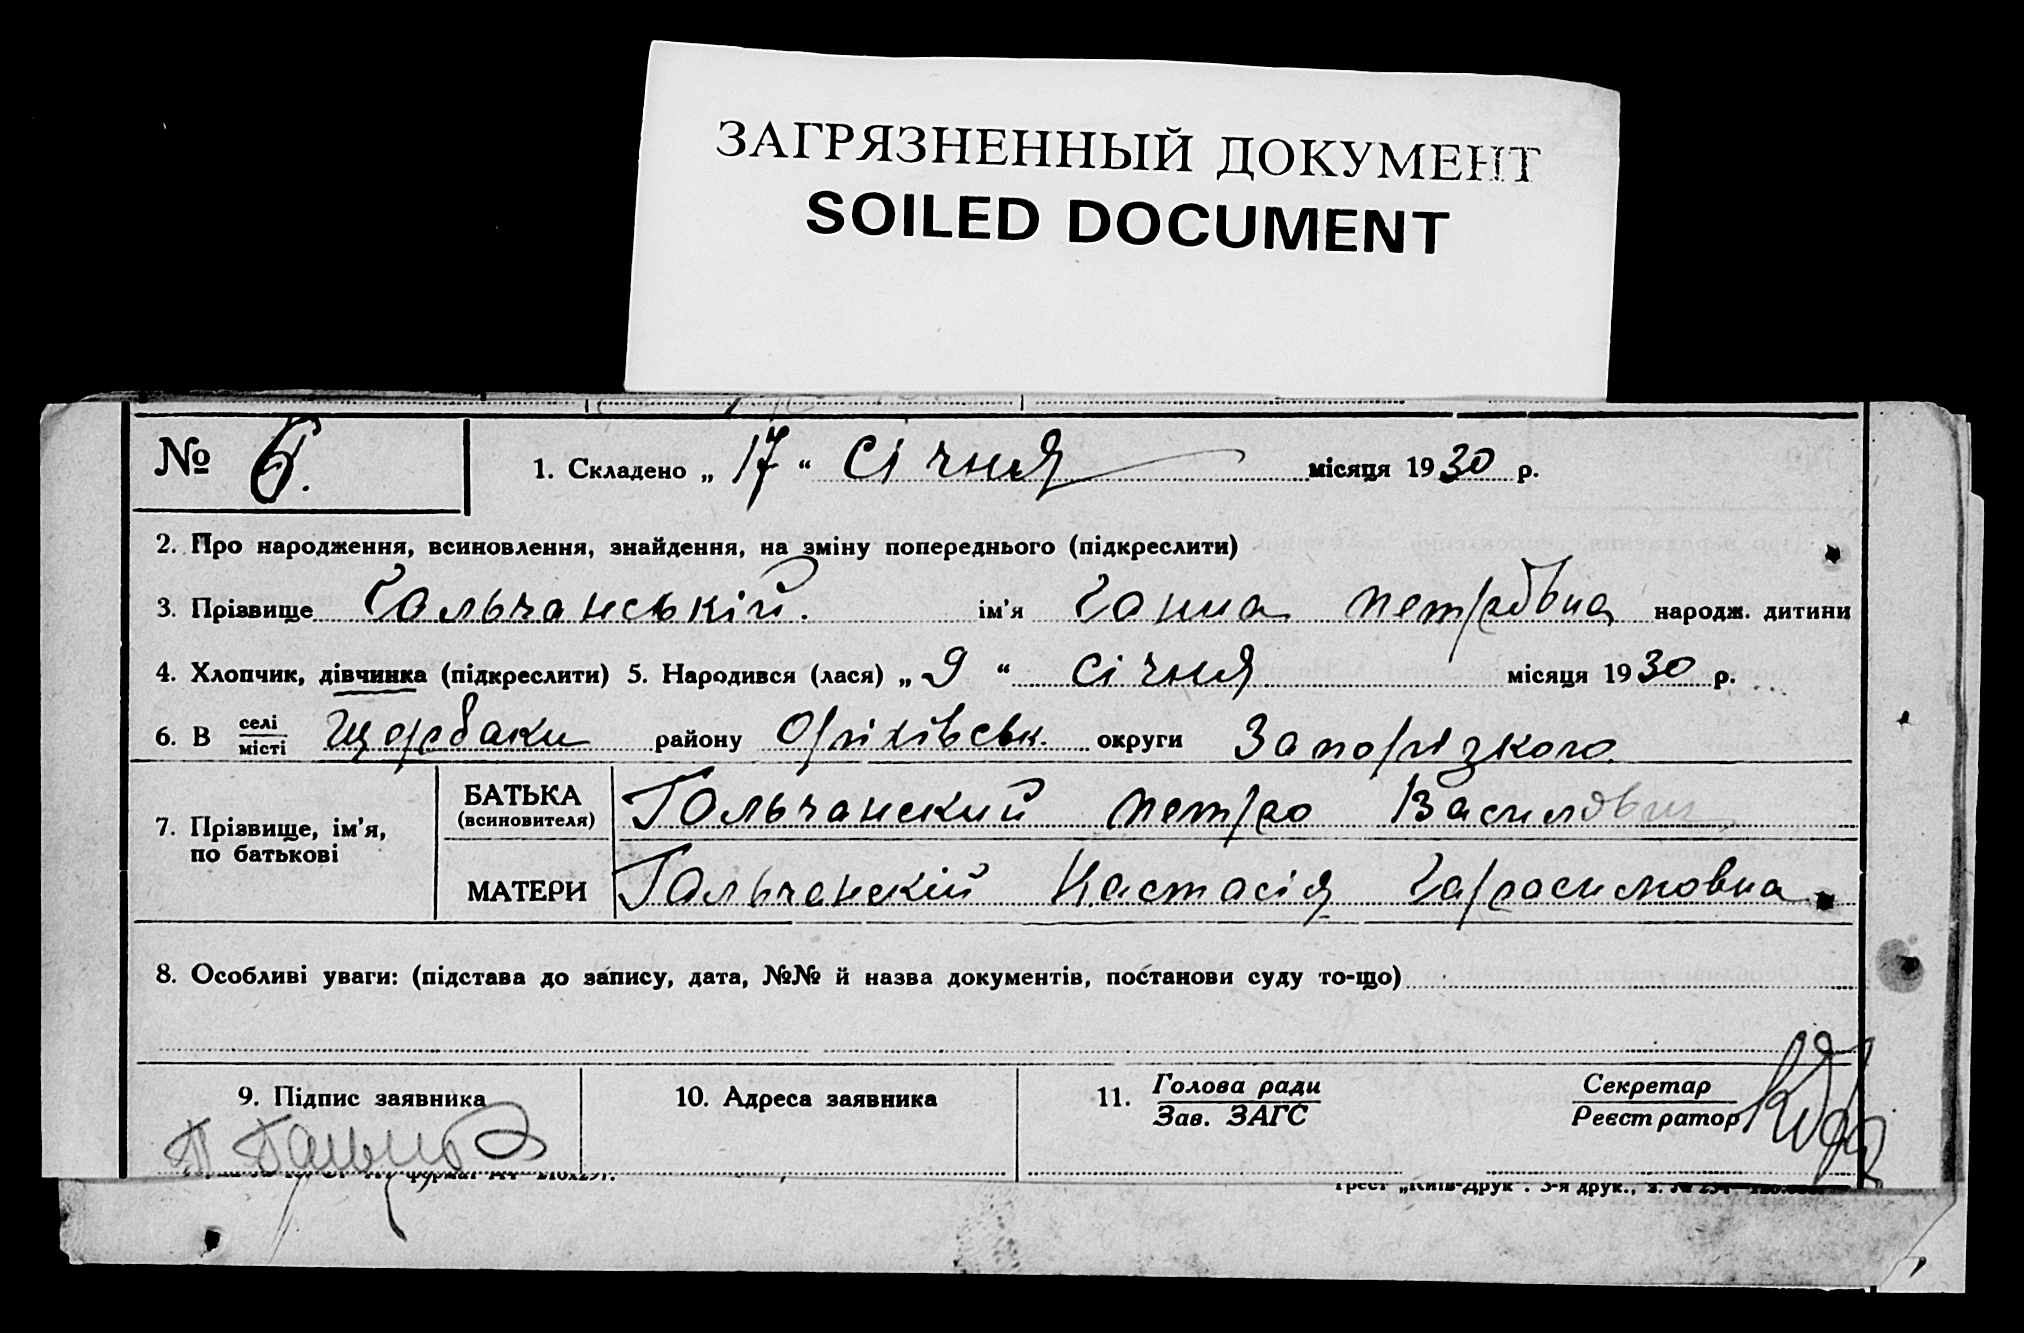 ЗАГРЯЗНЕННЫЙ ДОКУМЕНТ
SOILED DOCUMENT
№ 6. 1. Складено „ 17 “ січня місяця 1930 р.
2. Про народження, всиновлення, знайдення, на зміну попереднього (підкреслити)
3. Прізвище Гальчанській. ім’я Ганна Петровна народж. дитини
4. Хлопчик, дівчинка (підкреслити) 5. Народився (лася) „ 9 “ січня місяця 1930 р.
6. В селі/місті Щорбаки району Оріхівськ. округи Запорізкого
7. Прізвище, ім’я, по батькові
БАТЬКА (всиновителя) Гальчанский Петро Василович
МАТЕРИ Гальчанскій Настасія Гарасимовна
8. Особливі уваги: (підстава до запису, дата, №№ й назва документів, постанови суду то-що)
9. Підпис заявника 10. Адреса заявника 11. Голова ради/Зав. ЗАГС Секретар/Реєстратор
формат А4 210х297.
Трест „Київ-Друк“. 3-я друк., з. №